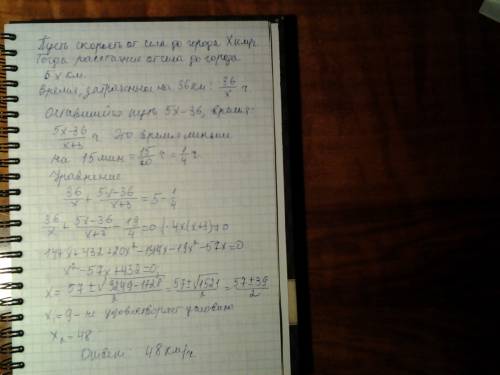 Пусть скорость от села до города X км/ч
Тогда расстояние от села до города
5x км.
Время, затраченное на 36 км: 36/x ч
Оставшийся путь 5x-36, время-
(5x-36)/(x+3) ч. Это время меньше
на 15 мин = 15/60 ч = 1/4 ч
Уравнение
36/x + (5x-36)/(x+3) = 5 - 1/4
36/x + (5x-36)/(x+3) - 19/4 = 0 | · 4x(x+3) ≠ 0
144x+432+20x²-144x-19x²-57x=0
x²-57x+432=0
x = (57±√(3249-1728))/2 = (57±√1521)/2 = (57±39)/2
x₁=9 - не удовлетворяет условию
x₂=48
Ответ: 48 км/ч